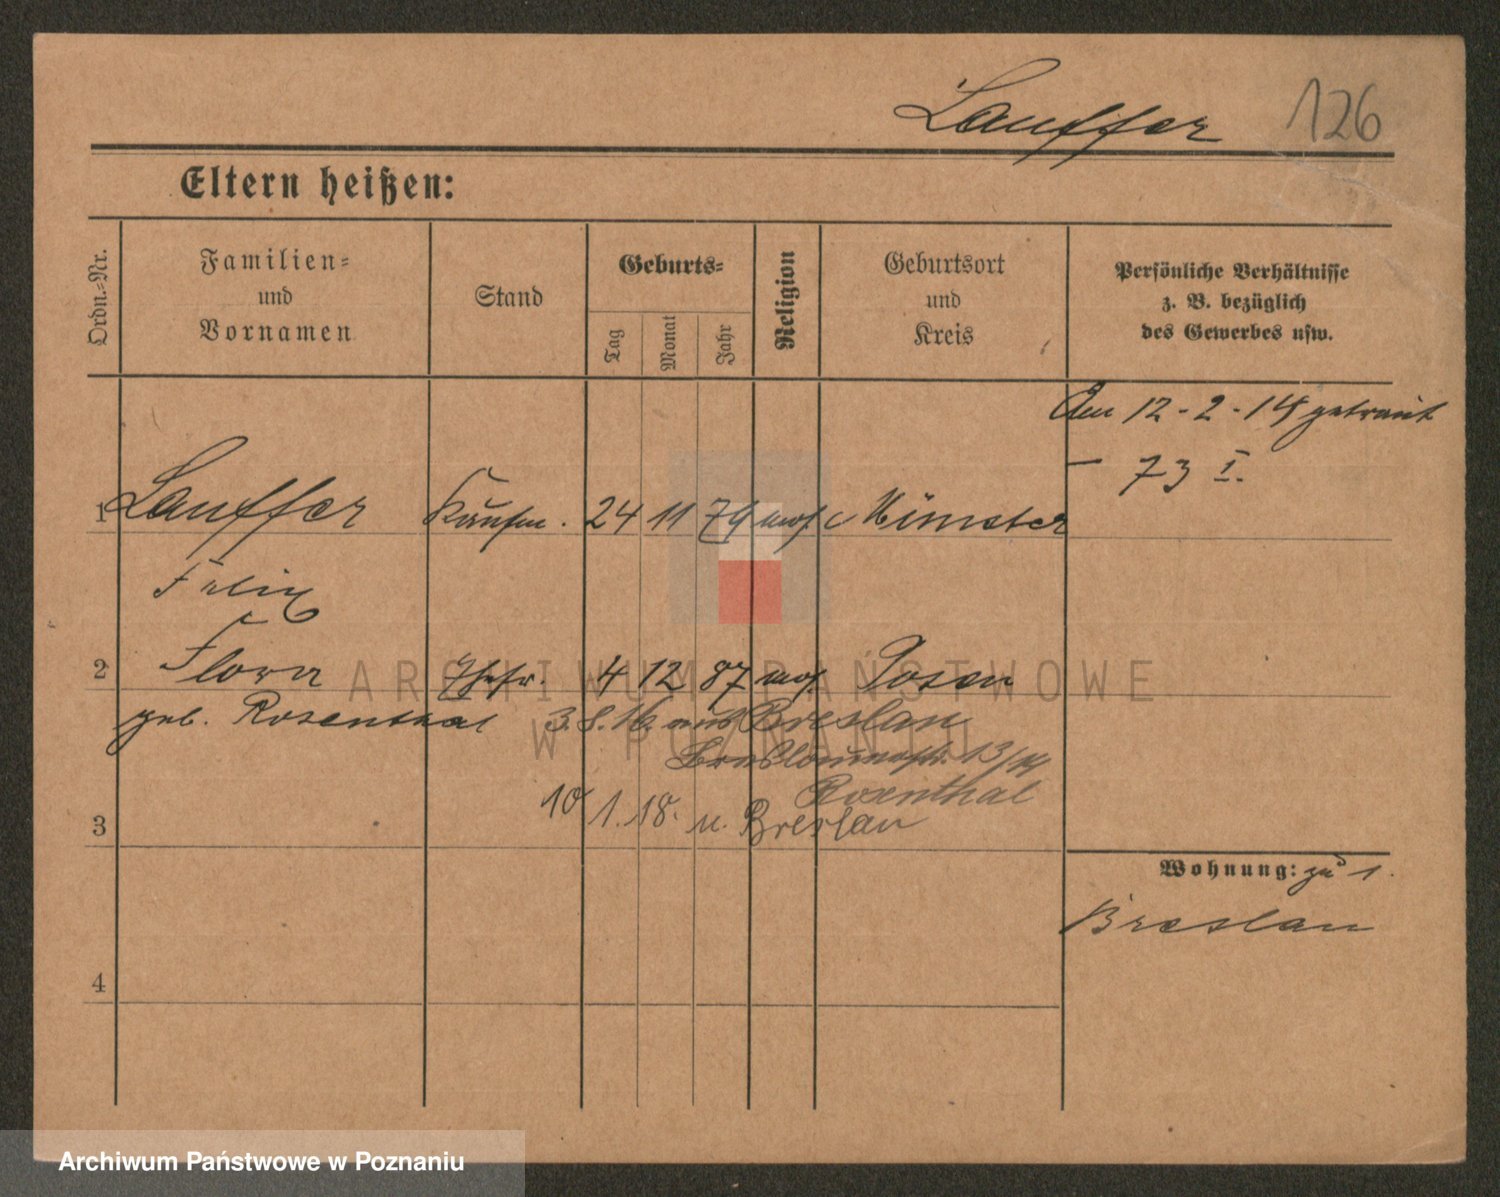 Lauffer 126
Eltern heißen:
Ordn.-Nr.
Familien-
und
Vornamen
Stand
Geburts-
Tag
Monat
Jahr
Religion
Geburtsort
und
Kreis
Persönliche Verhältnisse
z. B. bezüglich
des Gewerbes usw.
Am 12-2-14 getraut
- 73 I.
1 Lauffer Kaufm. 24 11 79 mos Münster
Felix
2 Flora Ehefr. 4 12 87 mos. Posen
geb. Rosenthal 3.8.16. aus Breslau
13/14
Rosenthal
10 1. 18. n. Breslau
3
Wohnung: zu 1.
Breslau
4
ARCHIWUM PAŃSTWOWE
W POZNANIU
Archiwum Państwowe w Poznaniu